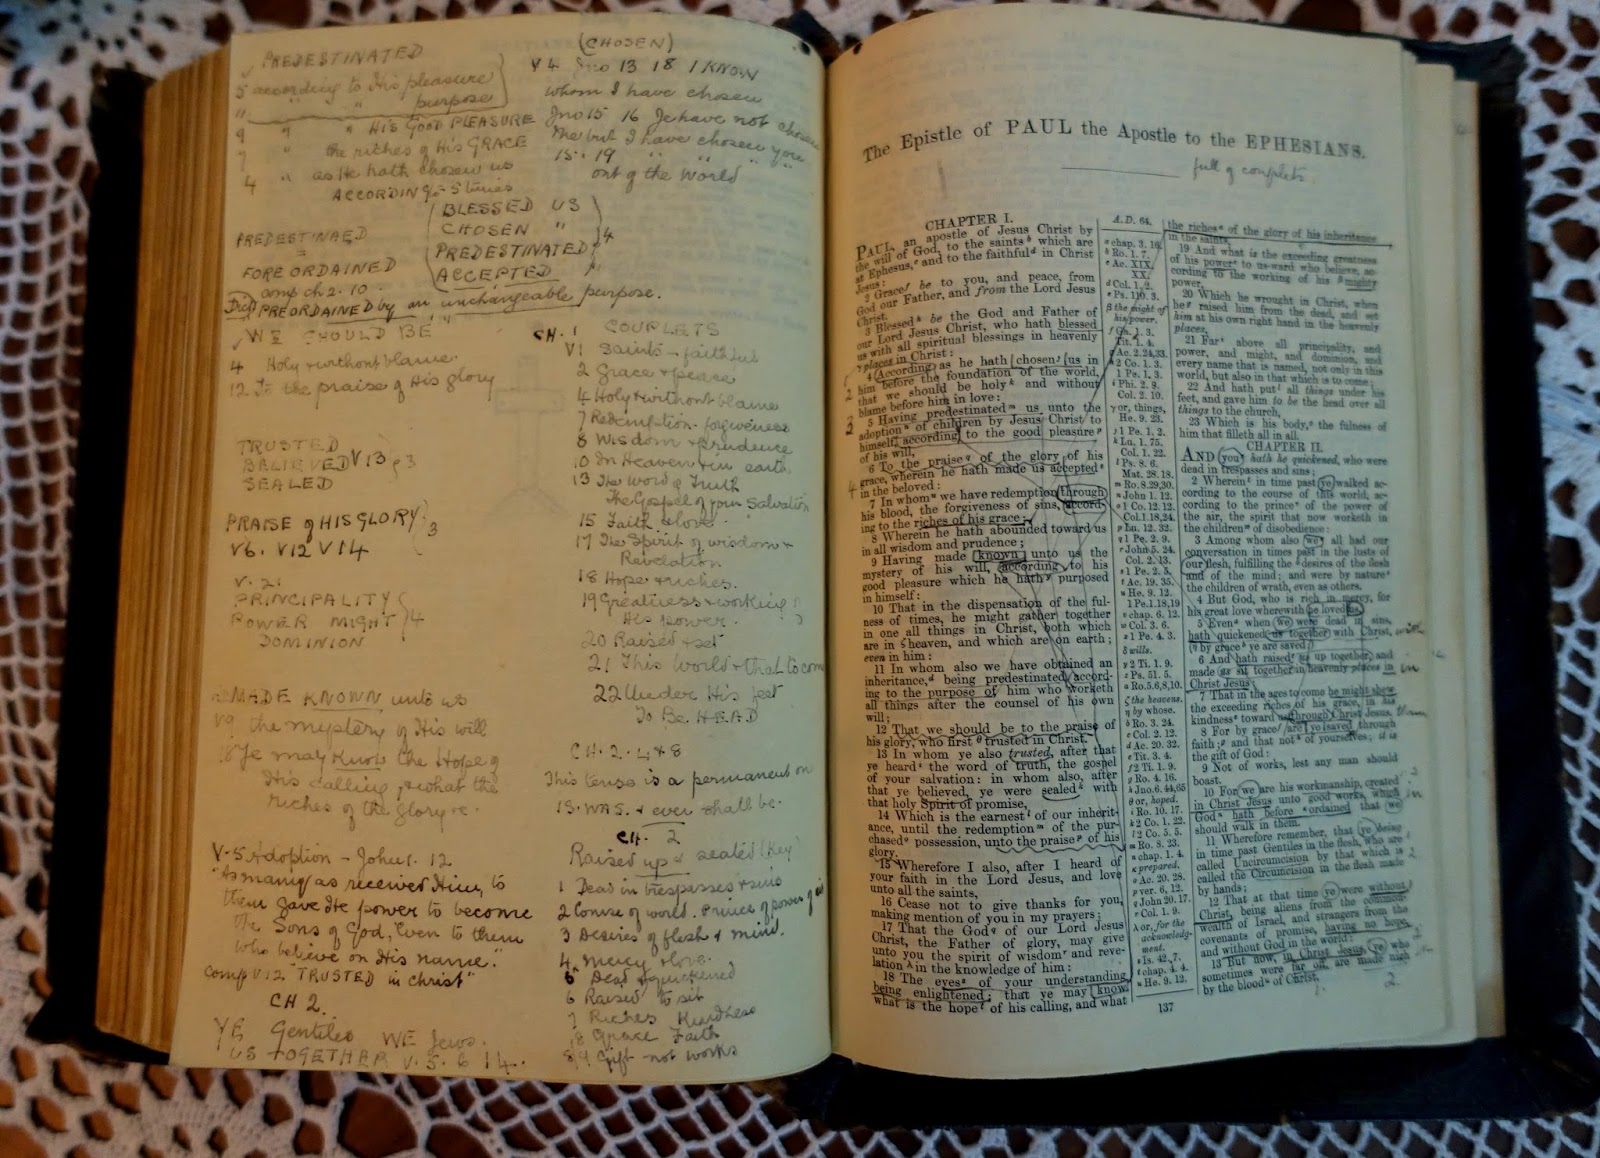 PREDESTINATED
5 according to His pleasure
" " " purpose
9 " " HIS GOOD PLEASURE
7 " the riches of His GRACE
4 " as He hath chosen us
ACCORDING - 5 times
(CHOSEN)
V 4 Jno 13 18 I KNOW
whom I have chosen
Jno 15 16 Ye have not chosen
Me but I have chosen you
15. 19 " " " "
out of the World
BLESSED US
CHOSEN "
PREDESTINATED
ACCEPTED
4
PREDESTINAED
=
FOREORDAINED
comp ch 2. 10.
Dict PREORDAINED by an unchangeable purpose.
WE SHOULD BE
4 Holy + without blame.
12 To the praise of His glory
TRUSTED
BELIEVED V 13 3
SEALED
PRAISE of HIS GLORY 3
V 6. V 12 V 14
V. 21
PRINCIPALITY
POWER MIGHT 4
DOMINION
MADE KNOWN unto us
V9 the mystery of His will
18 Ye may Know the Hope of
His calling, + what the
riches of the glory
V. 5 Adoption - John 1. 12
"As many as received Him, to
them gave He power to become
the Sons of God, even to them
who believe on His name."
comp V. 12 "TRUSTED in christ"
CH 2.
YE Gentiles WE Jews.
US TOGETHAR V. 5. 6 14.
CH. 1 COUPLETS
V1 Saints - faithful
2 Grace + peace
4 Holy + without blame
7 Redemption - forgiveness
8 Wisdom + prudence
10 In Heaven + in earth.
13 The Word of Truth
The Gospel of your Salvation
15 Faith + love.
17 The Spirit of wisdom +
Revelation
18 Hope + riches.
19 Greatness + working of
His power.
20 Raised + set
21 This World + that to com
22 Under His feet
To Be HEAD
CH. 2. 4 + 8
This tense is a permanent on
IS. WAS. + ever shall be.
CH. 2
Raised up + seated (Key)
1 Dead in trespasses + sins
2 Course of world. Prince of power of air
3 Desires of flesh + mind.
4 Mercy + love.
5 Dead + quickened
6 Raised to sit
7 Riches Kindness
8 Grace Faith
8/9 Gift - not works
The Epistle of PAUL the Apostle to the EPHESIANS.
full of couplets.
CHAPTER I.
PAUL, an apostle of Jesus Christ by
the will of God, to the saints which are
at Ephesus, and to the faithful in Christ
Jesus:
2 Grace be to you, and peace, from
God our Father, and from the Lord Jesus
Christ.
3 Blessed be the God and Father of
our Lord Jesus Christ, who hath blessed
us with all spiritual blessings in heavenly
places in Christ:
4 According as he hath chosen us in
him before the foundation of the world,
that we should be holy and without
blame before him in love:
5 Having predestinated us unto the
adoption of children by Jesus Christ to
himself, according to the good pleasure
of his will,
6 To the praise of the glory of his
grace, wherein he hath made us accepted
in the beloved:
7 In whom we have redemption through
his blood, the forgiveness of sins, accord-
ing to the riches of his grace;
8 Wherein he hath abounded toward us
in all wisdom and prudence;
9 Having made known unto us the
mystery of his will, according to his
good pleasure which he hath purposed
in himself:
10 That in the dispensation of the ful-
ness of times, he might gather together
in one all things in Christ, both which
are in heaven, and which are on earth;
even in him:
11 In whom also we have obtained an
inheritance, being predestinated accord-
ing to the purpose of him who worketh
all things after the counsel of his own
will;
12 That we should be to the praise of
his glory, who first trusted in Christ.
13 In whom ye also trusted, after that
ye heard the word of truth, the gospel
of your salvation: in whom also, after
that ye believed, ye were sealed with
that holy Spirit of promise,
14 Which is the earnest of our inherit-
ance, until the redemption of the pur-
chased possession, unto the praise of his
glory.
15 Wherefore I also, after I heard of
your faith in the Lord Jesus, and love
unto all the saints,
16 Cease not to give thanks for you,
making mention of you in my prayers;
17 That the God of our Lord Jesus
Christ, the Father of glory, may give
unto you the spirit of wisdom and reve-
lation in the knowledge of him:
18 The eyes of your understanding
being enlightened; that ye may know
what is the hope of his calling, and what
A.D. 64.
chap. 3. 16.
Ro. 1. 7.
Ac. XIX,
XX.
Col. 1. 2.
the might of
his power.
Tit. 1. 4.
Ac. 2. 24,33.
1 Pe. 1. 3.
Phi. 2. 9.
Col. 2. 10.
or, things,
He. 9. 23.
Lu. 1. 75.
Col. 1. 22.
Ps. 8. 6.
Mat. 28. 18.
Ro. 8.29,30.
John 1. 12.
1 Co. 12. 12.
Col.1.18,24.
Jno.6.44,65
or, hoped.
Ro. 10. 17.
2 Co. 1. 22.
2 Co. 5. 5.
Ro. 8. 23.
chap. 1. 4.
prepared.
Ac. 20. 28.
ver. 6, 12.
John 20. 17.
Col. 1. 9.
or, for the
acknowledg-
ment.
Is. 42. 7.
chap. 4. 4.
He. 9. 12.
the riches of the glory of his inheritance
in the saints,
19 And what is the exceeding greatness
of his power to us-ward who believe, ac-
cording to the working of his mighty
power,
20 Which he wrought in Christ, when
he raised him from the dead, and set
him at his own right hand in the heavenly
places,
21 Far above all principality, and
power, and might, and dominion, and
every name that is named, not only in this
world, but also in that which is to come;
22 And hath put all things under his
feet, and gave him to be the head over all
things to the church,
23 Which is his body, the fulness of
him that filleth all in all.
CHAPTER II.
AND you hath he quickened, who were
dead in trespasses and sins;
2 Wherein in time past ye walked ac-
cording to the course of this world, ac-
cording to the prince of the power of
the air, the spirit that now worketh in
the children of disobedience:
3 Among whom also we all had our
conversation in times past in the lusts of
our flesh, fulfilling the desires of the flesh
and of the mind; and were by nature
the children of wrath, even as others.
4 But God, who is rich in mercy, for
his great love wherewith he loved us,
5 Even when we were dead in sins,
hath quickened us together with Christ,
(by grace ye are saved;)
6 And hath raised us up together, and
made us sit together in heavenly places in
Christ Jesus;
7 That in the ages to come he might shew
the exceeding riches of his grace, in his
kindness toward us through Christ Jesus.
8 For by grace are ye saved through
faith; and that not of yourselves; it is
the gift of God:
9 Not of works, lest any man should
boast.
10 For we are his workmanship, created
in Christ Jesus unto good works, which
God hath before ordained that we
should walk in them.
11 Wherefore remember, that ye being
in time past Gentiles in the flesh, who are
called Uncircumcision by that which is
called the Circumcision in the flesh made
by hands;
12 That at that time ye were without
Christ, being aliens from the common-
wealth of Israel, and strangers from the
covenants of promise, having no hope,
and without God in the world:
13 But now, in Christ Jesus, ye who
sometimes were far off, are made nigh
by the blood of Christ.
137